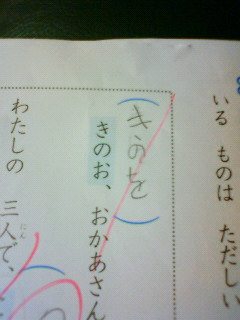 いる ものは ただしい
(きのを)
きのお、おかあさん
わたしの 三人で、
にん